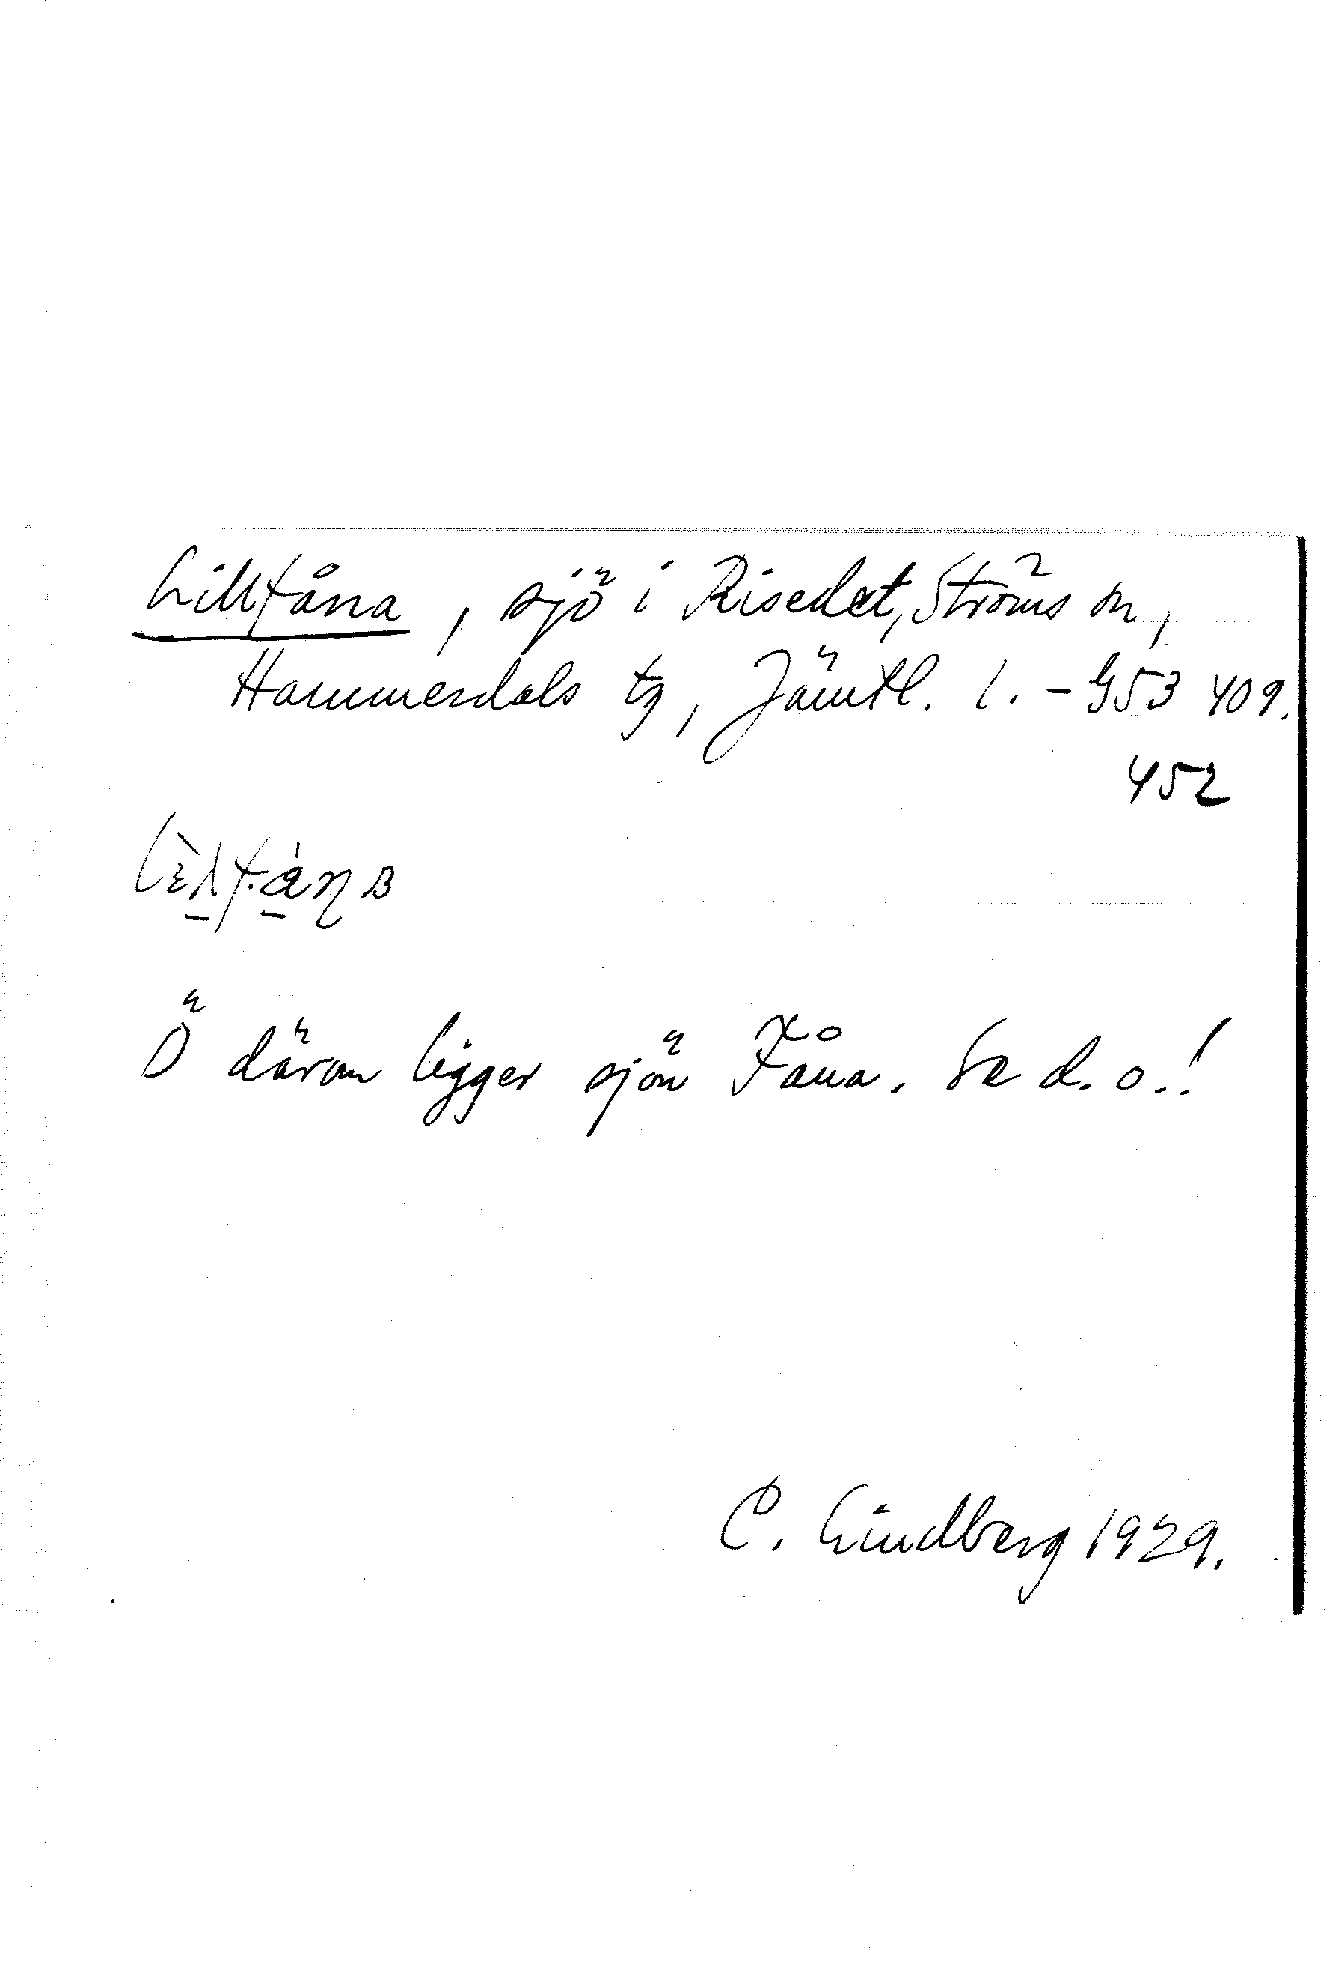 Lillfåna, sjö i Risedet, Ströms sn,
Hammerdals tg, Jämtl. l. - G53 409.
452
Ö därom ligger sjön Fåna. Se d. o.!
C. Lindberg 1929.